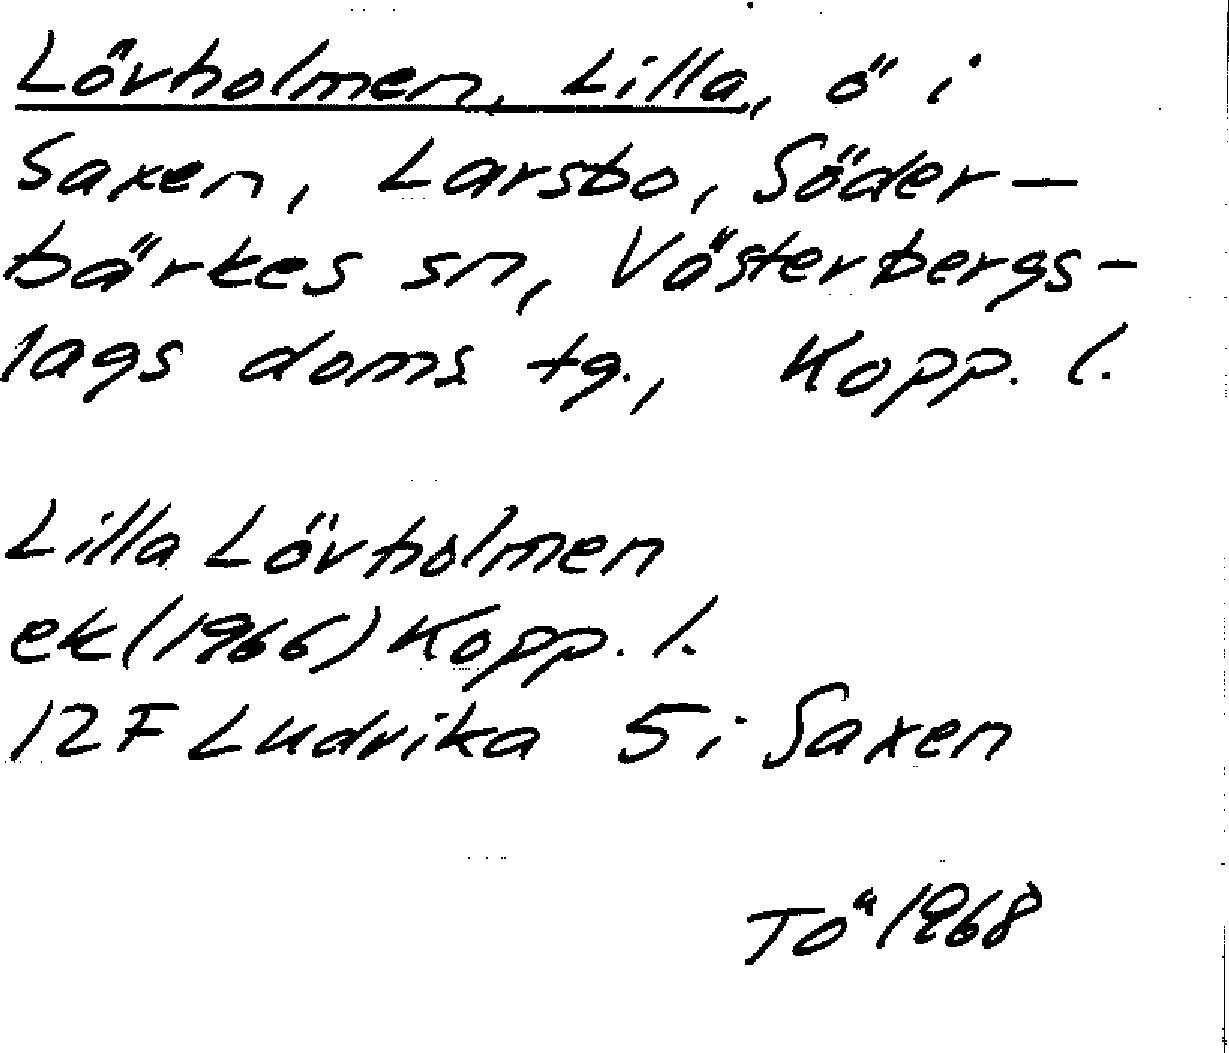 Lövholmen, Lilla, ö i
Saxen, Larsbo, Söder-
bärkes sn, Västerbergs-
lags doms tg., Kopp. l.
Lilla Lövholmen
ek (1966) Kopp. l.
12F Ludvika 5 i Saxen
TÖ 1968